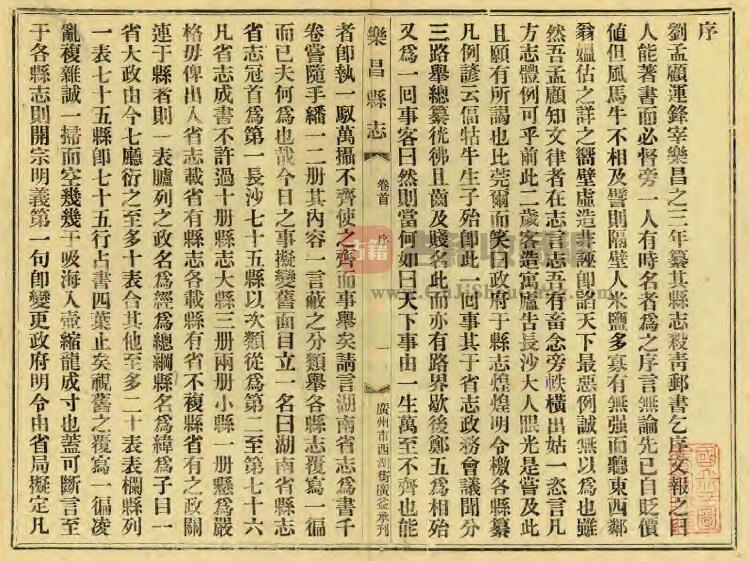 序
劉孟顧運鋒宰樂昌之三年纂其縣志殺青郵書乞序余報之曰
人能著書而必督旁一人有時名者為之序言無論先已自貶價
值但風馬牛不相及譬則隔壁人米鹽多寡有無强而聽東西鄰
翁媼估之詳之嚮壁虛造非誣即諂天下最惡例誠無以為也雖
然吾孟顧知文律者在志言志吾有畜念旁軼橫出姑一恣言凡
方志體例可乎前此二歲客造寓廬告長沙大人眼光是嘗及此
且願有所謁也比莞爾而笑曰政府于縣志煌煌明令檄各縣纂
凡例諺云牯牛生子殆即此一回事其于省志政務會議聞分
三路舉總纂恍彿且齒及賤名此而亦有路界歇後鄭五為相殆
又為一回事客曰然則當何如曰天下事由一生萬至不齊也能
樂昌縣志
卷首
序
一
廣州市西湖街廣益承刊
者即執一馭萬攝不齊使之齊而事舉矣請言湖南省志為書千
卷嘗隨手繙一二册其內容一言蔽之分類舉各縣志覆寫一徧
而已夫何為也哉今日之事擬變舊面目立一名曰湖南省縣志
省志冠首為第一長沙七十五縣以次類從為第二至第七十六
凡省志成書不許過十册縣志大縣三册兩册小縣一册懸為嚴
格毋俾出入省志載省有縣志各載縣有省不複縣省有之政關
連于縣者則一表臚列之政名為經為總綱縣名為緯為子目一
省大政由今七廳衍之至多十表合其他至多二十表表欄縣列
一表七十五縣即七十五行占書四葉止矣視舊之覆寫一徧凌
亂複雜誠一掃而空幾幾乎吸海入壺縮龍成寸也蓋可斷言至
于各縣志則開宗明義第一句即變更政府明令由省局擬定凡